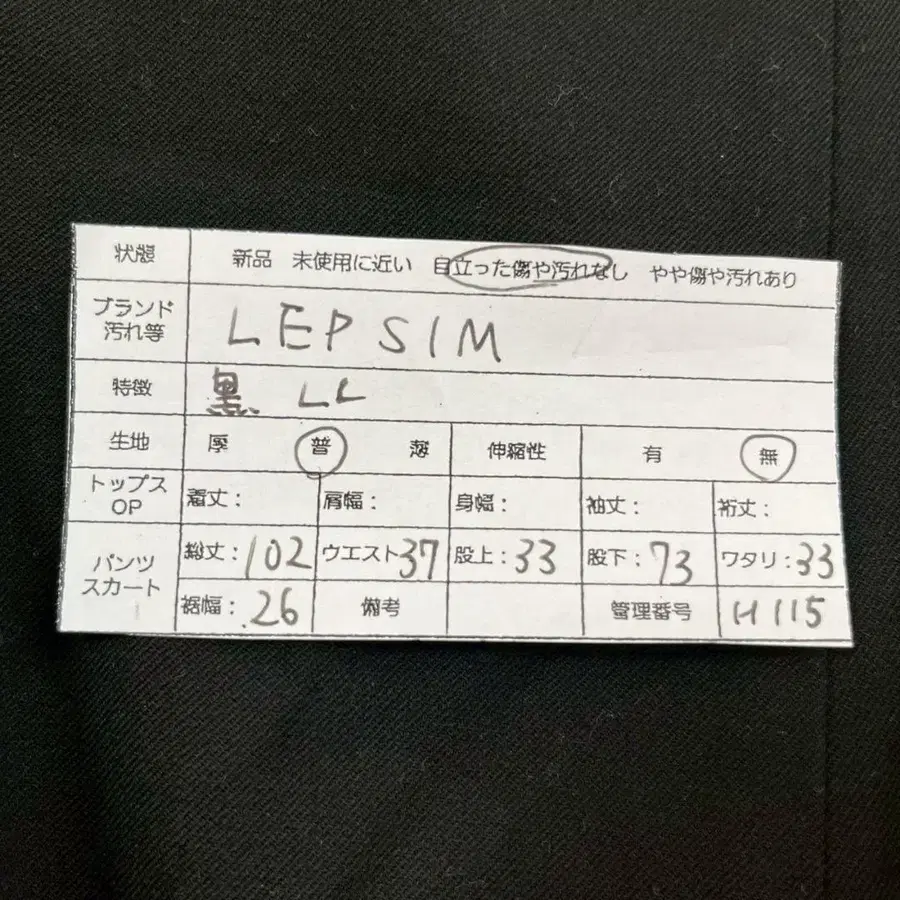 状態 新品 未使用に近い 目立った傷や汚れなし やや傷や汚れあり
ブランド
汚れ等
LEPSIM
特徴 黒 LL
生地 厚 普 薄 伸縮性 有 無
トップス
OP
着丈: 肩幅: 身幅: 袖丈: 裄丈:
パンツ
スカート
総丈:102 ウエスト37 股上:33 股下:73 ワタリ:33
裾幅:26 備考 管理番号 H115